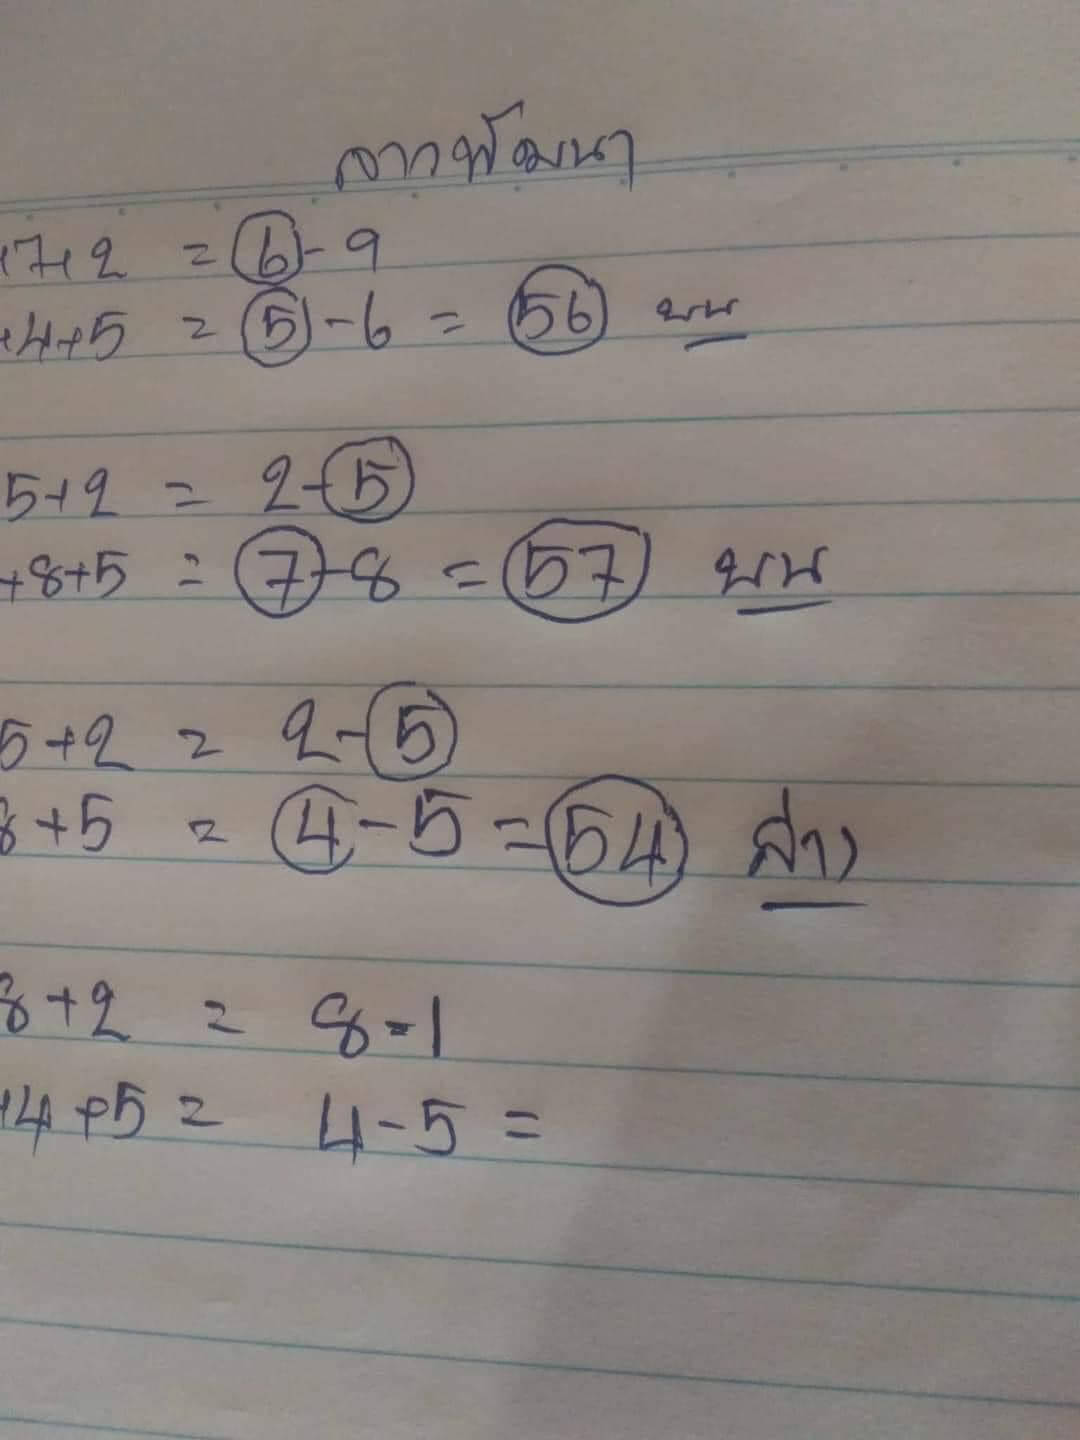 ลาวพัฒนา
+7+2 = 6-9
+4+5 = 5-6 = 56 บน
5+2 = 2-5
+8+5 = 7-8 = 57 บน
5+2 = 2-5
8+5 = 4-5 = 54 ล่าง
8+2 = 8-1
+4+5 = 4-5 =